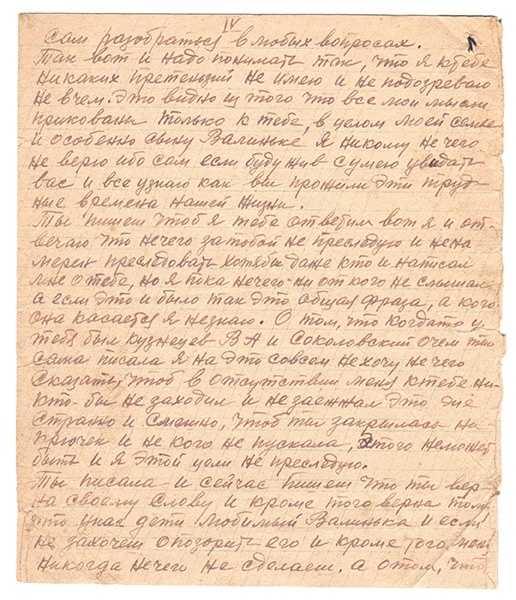 IV
сам разобраться в любых вопросах.
Так вот и надо понимать так, что я к тебе
никаких претензий не имею и не подозреваю
не в чем. Это видно из того что все мои мысли
прикованы только к тебе, в целом моей семье
и особенно сыну Валиньке Я никому не чего
не верю ибо сам если буду жив сумею увидать
вас и все узнаю как вы прожили эти труд-
ные времена нашей жизни.
Ты пишеш чтоб я тебе ответил вот я и от-
вечаю что нечего за тобой не преследую и не на
мерен преследовать хотябы даже кто и написал
мне о тебе, но я пока нечего ни от кого не слышал
а если это и было так это общая фраза, а кого
она касается я незнаю. О том, что когдато у
тебя был Кузнецев В А и Соколовский о чем ты
сама писала я на это совсем не хочу не чего
сказать, чтоб в отсутствии меня к тебе ни-
кто-бы не заходил и не заежал это
странно и смешно, чтоб ты закрылась на
крючек и не кого не пускала, этого неможет
быть и я этой цели не преследую.
Ты писала и сейчас пишеш что ты верна
на своему слову и кроме того верна тому
что у нас дети Любимый Валинька и если
не захочем опозорить его и кроме того меня
никогда нечего не сделаем. а о том, что